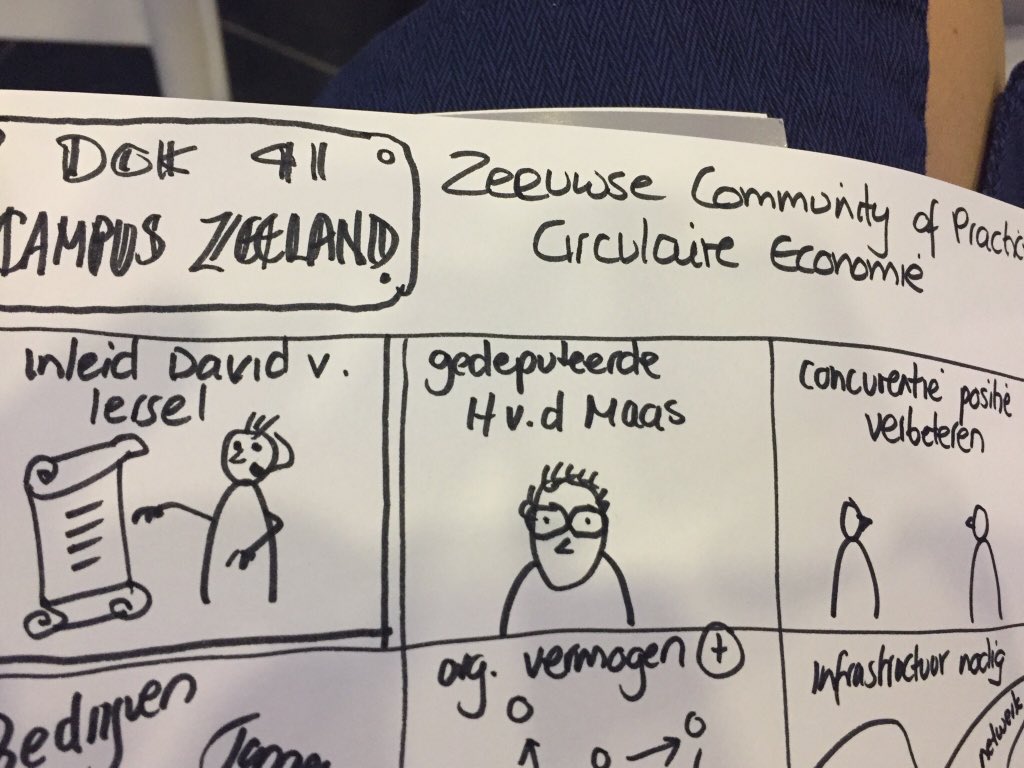 DOK 41
CAMPUS ZEELAND
Zeeuwse Community of Practic
Circulaire Economie
Inleid David v.
Iersel
gedeputeerde
H v.d Maas
concurentie positie
verbeteren
Bedrijven
org. vermogen +
infrastructuur nodig
netwerk